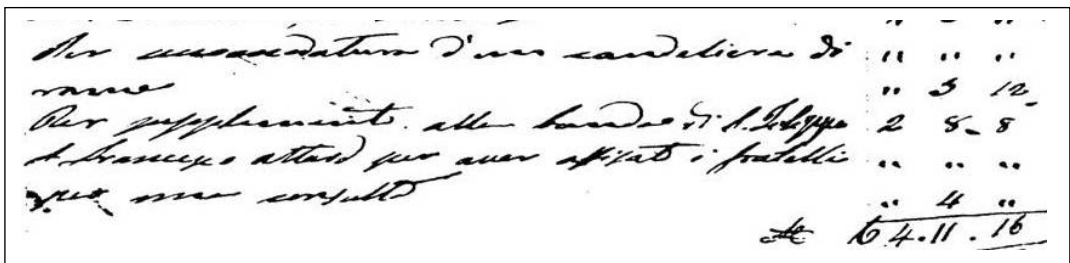 Per accomodatura d'un candeliere di " " "
rame " 3 12
Per supplimento alla banda di S. Filippo 2 8 8
A Francesco Attard per aver avisati i fratelli " " "
per una consulta " 4 "
£ 4.11.16